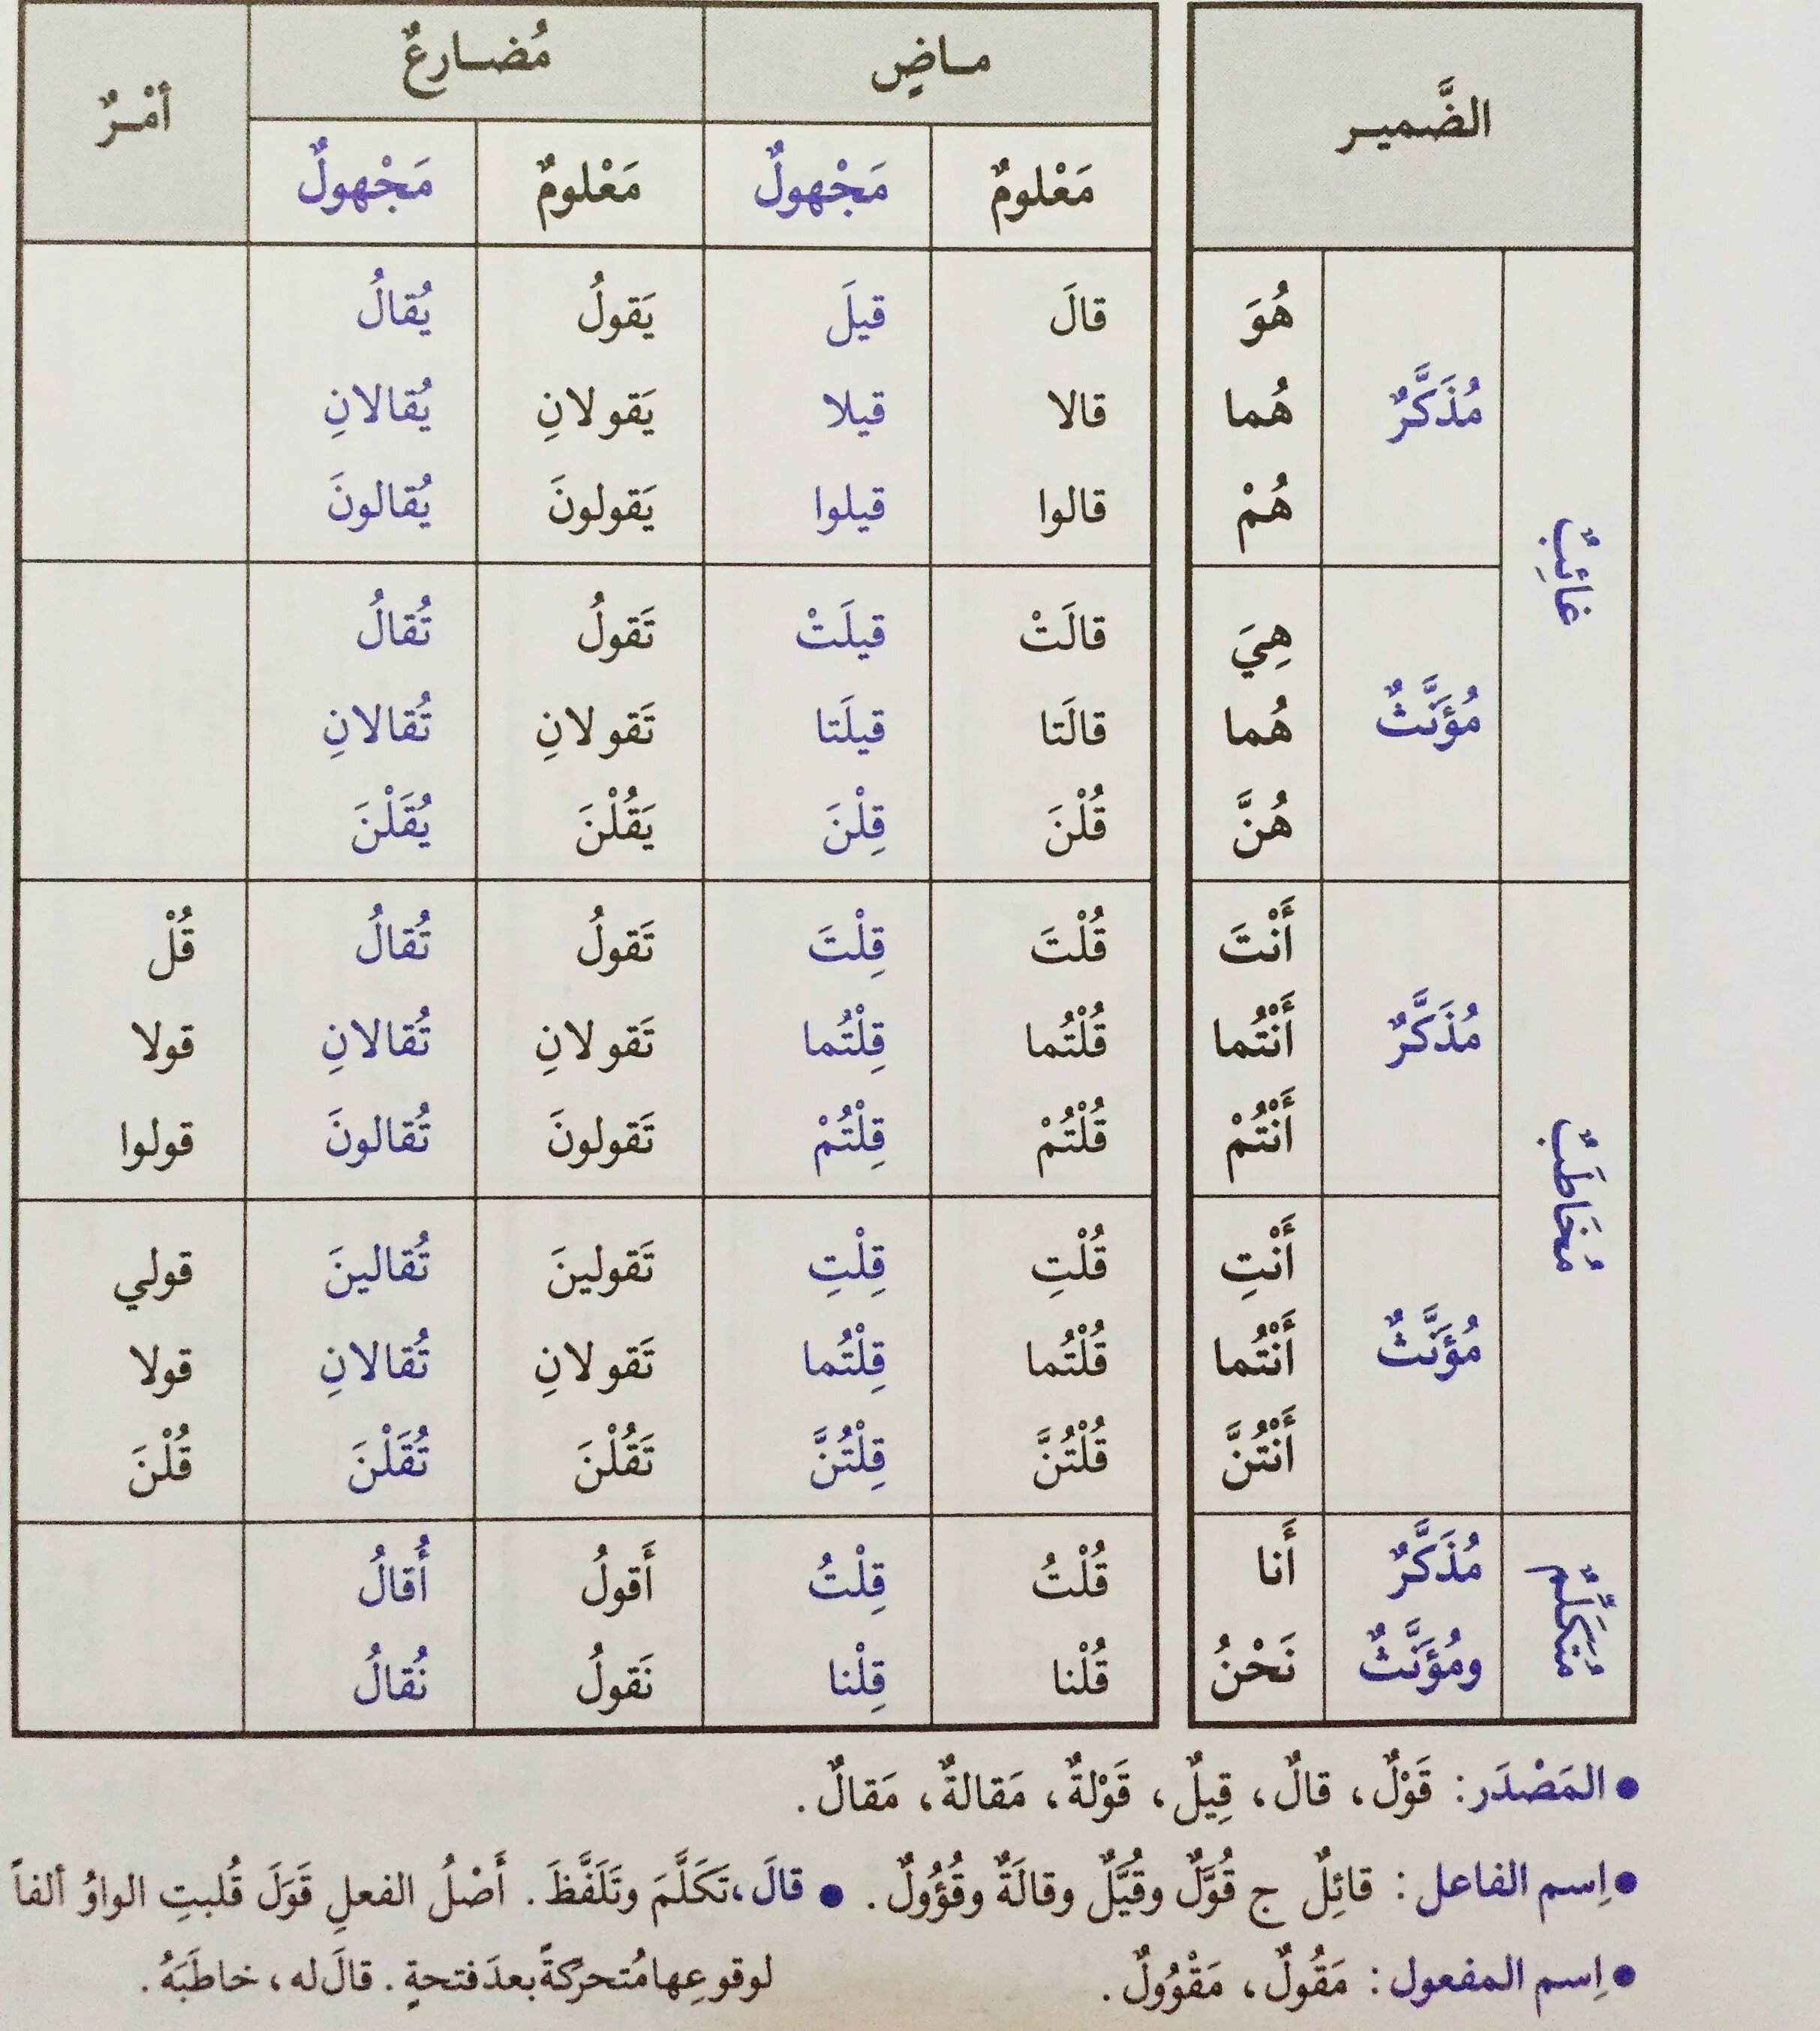 الضَّمير ماضٍ مُضارعٌ أمْرٌ
مَعْلومٌ مَجْهولٌ مَعْلومٌ مَجْهولٌ
غائِبٌ
مُذَكَّرٌ
هُوَ قالَ قيلَ يَقولُ يُقالُ
هُما قالا قيلا يَقولانِ يُقالانِ
هُمْ قالوا قيلوا يَقولونَ يُقالونَ
مُؤَنَّثٌ
هِيَ قالَتْ قيلَتْ تَقولُ تُقالُ
هُما قالَتا قيلَتا تَقولانِ تُقالانِ
هُنَّ قُلْنَ قِلْنَ يَقُلْنَ يُقَلْنَ
مُخَاطَبٌ
مُذَكَّرٌ
أَنْتَ قُلْتَ قِلْتَ تَقولُ تُقالُ قُلْ
أَنْتُما قُلْتُما قِلْتُما تَقولانِ تُقالانِ قولا
أَنْتُمْ قُلْتُمْ قِلْتُمْ تَقولونَ تُقالونَ قولوا
مُؤَنَّثٌ
أَنْتِ قُلْتِ قِلْتِ تَقولينَ تُقالينَ قولي
أَنْتُما قُلْتُما قِلْتُما تَقولانِ تُقالانِ قولا
أَنْتُنَّ قُلْتُنَّ قِلْتُنَّ تَقُلْنَ تُقَلْنَ قُلْنَ
مُتَكَلِّمٌ
مُذَكَّرٌ أَنا قُلْتُ قِلْتُ أَقولُ أُقالُ
ومُؤَنَّثٌ نَحْنُ قُلْنا قِلْنا نَقولُ نُقالُ
● المَصْدَر: قَوْلٌ، قالٌ، قِيلٌ، قَوْلةٌ، مَقالةٌ، مَقالٌ.
● اِسم الفاعل: قائِلٌ ج قُوَّلٌ وقُيَّلٌ وقالَةٌ وقُؤُولٌ. ● قالَ، تَكَلَّمَ وتَلَفَّظَ. أَصْلُ الفعلِ قَوَلَ قُلبتِ الواوُ ألفاً
● اِسم المفعول: مَقُولٌ، مَقْوُولٌ. لوقوعِها مُتحرّكةً بعدَ فتحةٍ. قالَ له، خاطَبَهُ.